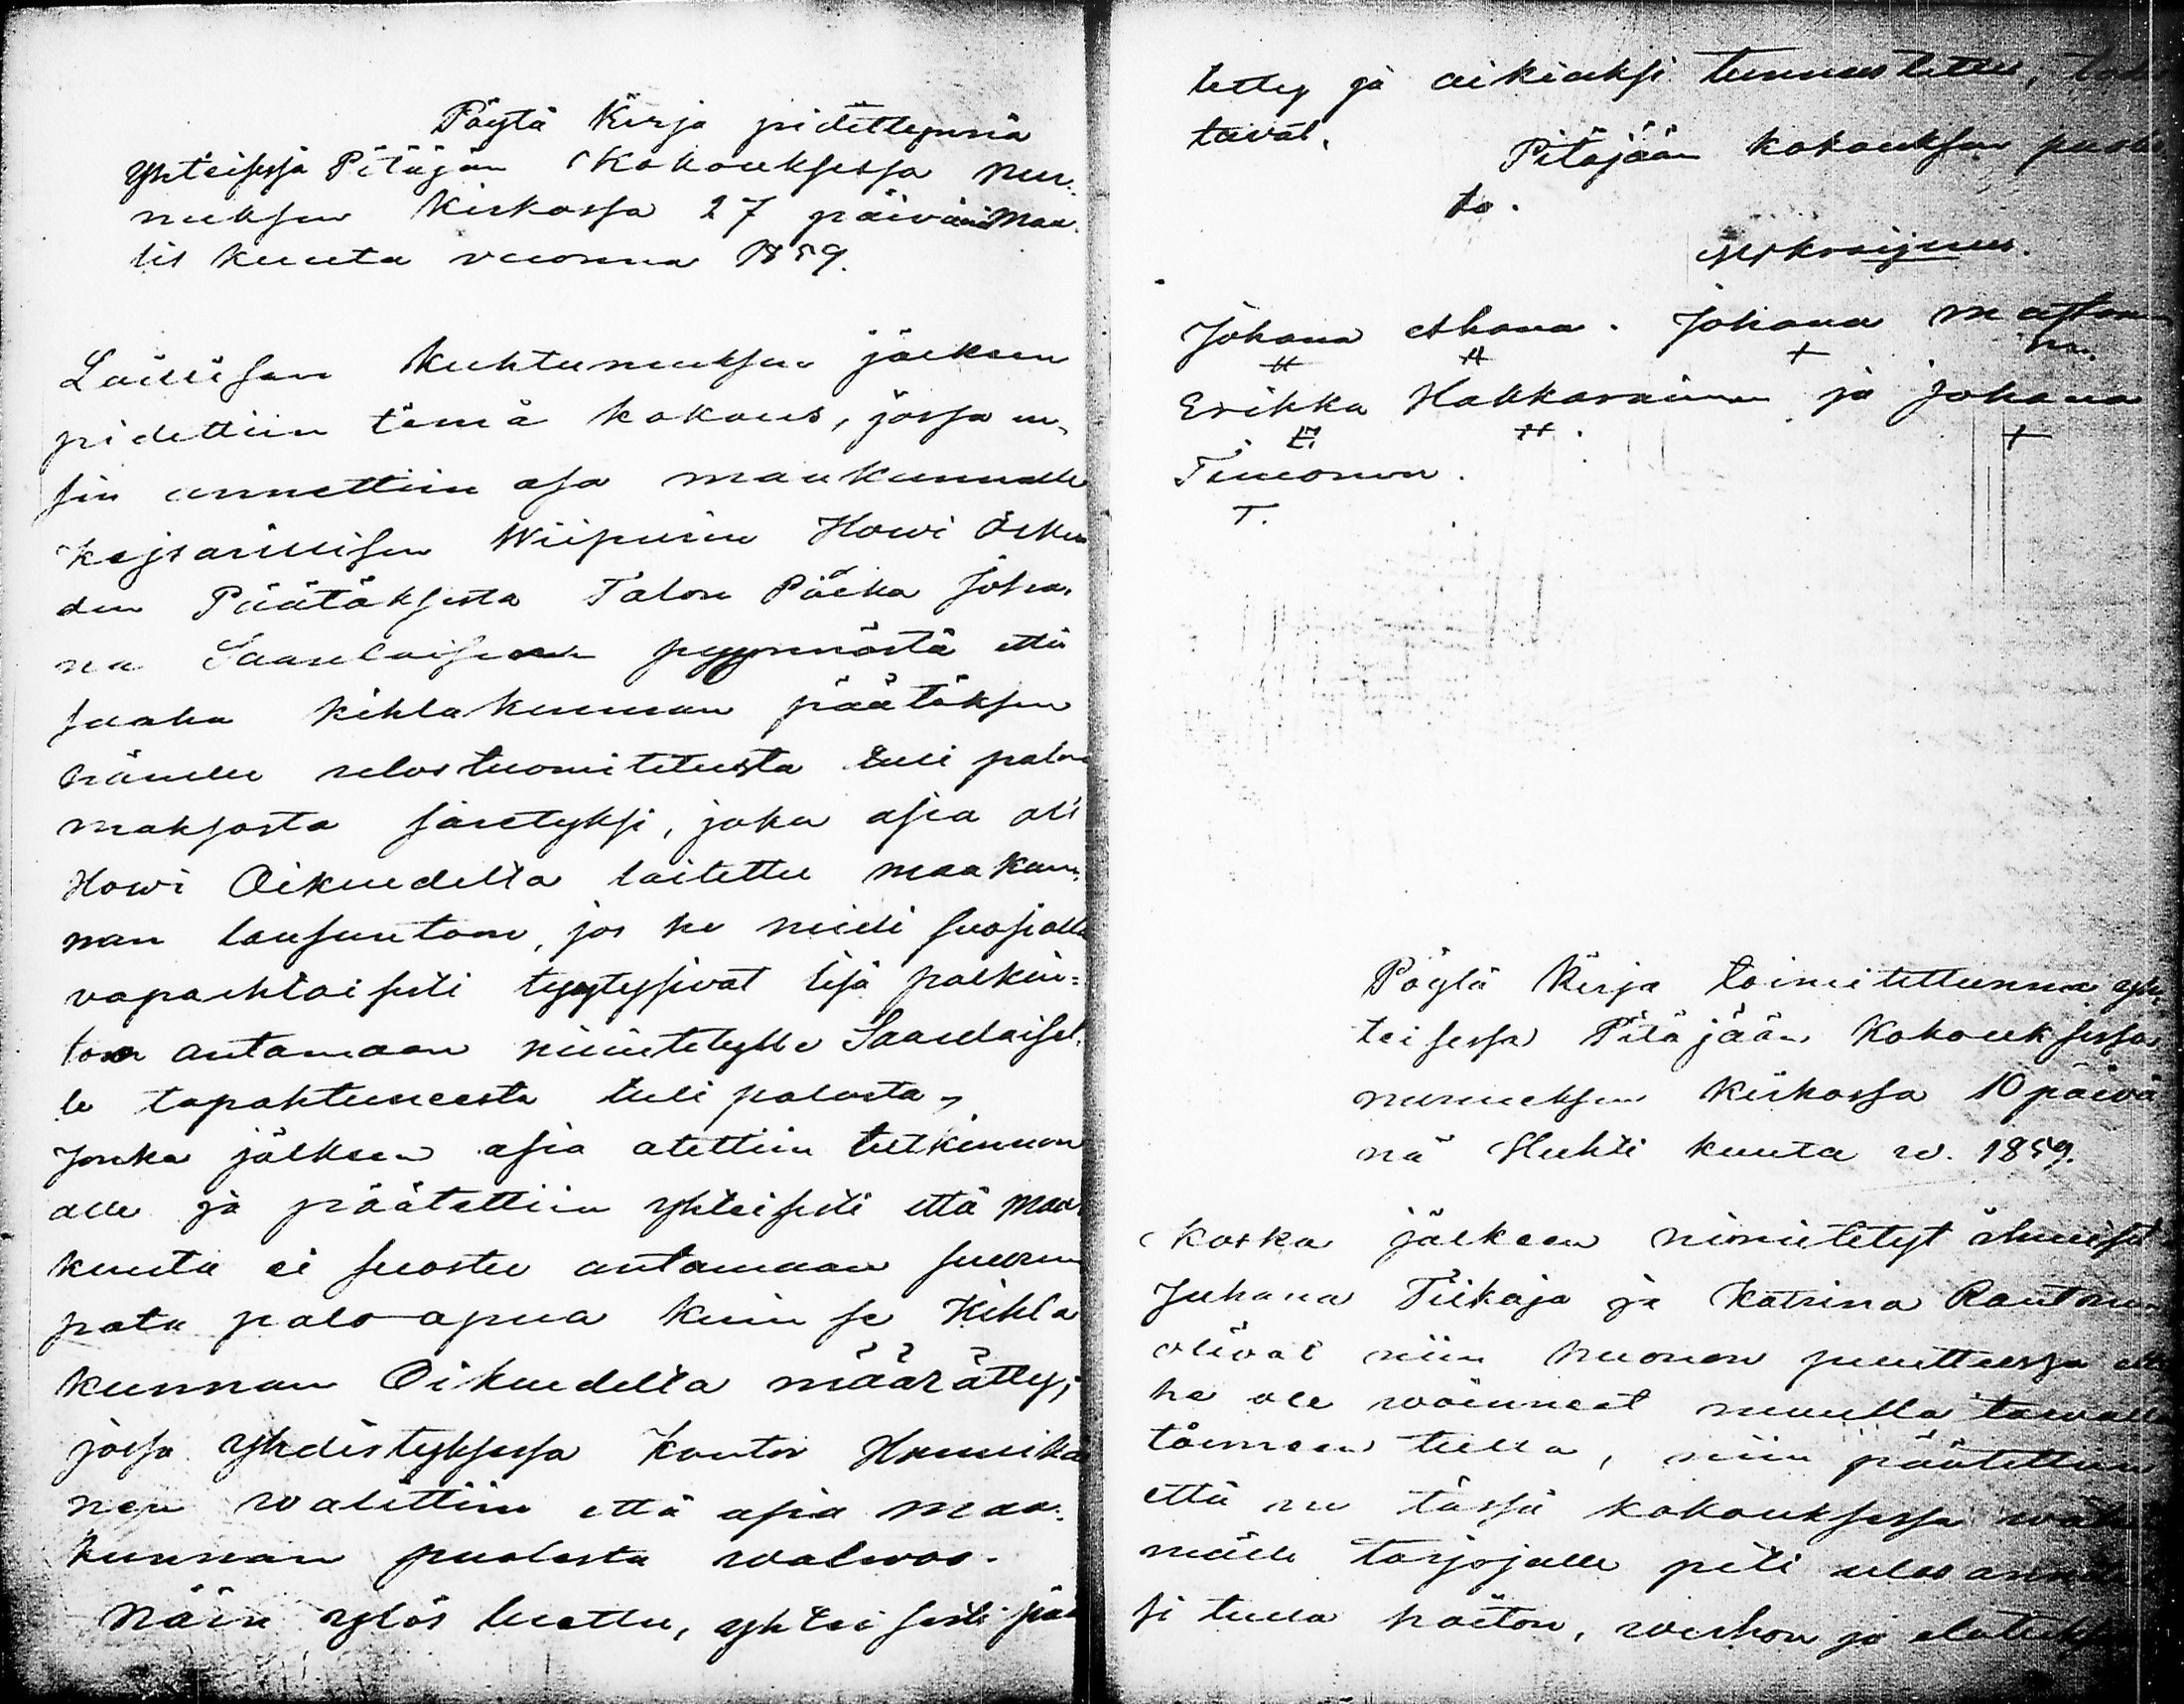 Pöytä Kirja pidettynnä
Yhteisessä Pitäjän Kokouksessa nur-
meksen Kirkossa 27 päivänä Maa-
lis kuuta vuonna 1859.
Laillisen kuhtumuksen jälkeen
pidettiin tämä kokous, jossa en-
sin annettiin asa maakunnalle
Kejsarillisen Wiipurin Howi Oikeu
den Päätöksestä Talon Poika Joha-
na Saarelaisen pyynnöstä että
saaha kihlakunnan päätöksen
hänelle ulos tuomitetusta tuli palon
maksosta säretyksi, joka asia oli
Howi Oikeudelta laitettu maakun-
nan lausuntoon, jos he niitä suosiolla
vapaehtoisesti tyytysivät lisä palkin-
toa antamaan nimitetylle Saarelaisel-
le tapahtuneesta tuli palosta,
Jonka jälkeen asia otettiin tutkinnon
alle ja päätettiin yhteisesti että maa
kunta ei suostu antamaan suurem
pata palo apua kuin se Kihla
kunnan Oikeudelta määrätty;
jossa yhdistyksessä Kontor
nen walittiin että asia maa-
kunnan puolesta walwoo.
Näin ylös luettu, yhteisesti pää
tetty ja oikiaksi tunnustettu, todis
tavat.
Pitäjään kokouksen puoles
to.
Johana Ahona. Johana Mustonen
H H + m.
Erikka Hakkarainen ja Johana
E. H. +
Timonen.
T.
Pöytä Kirja toimitettunna yh-
teisessä Pitäjään Kokouksessa
nurmeksen Kirkossa 10 päivä
nä Huhti kuuta w. 1859.
Koska jälkeen nimitetyt ihmiset
Juhana Tiikaja ja Katrina Rautonen
olivat niin huonon puutteessa ett
he ole woinneet muulla tawalla
toimeen tulla, niin päätettiin
että ne tässä kokouksessa wähe
mälle tarjojalle piti ulos annet
si tulla hoiton, waihon ja elatuksen